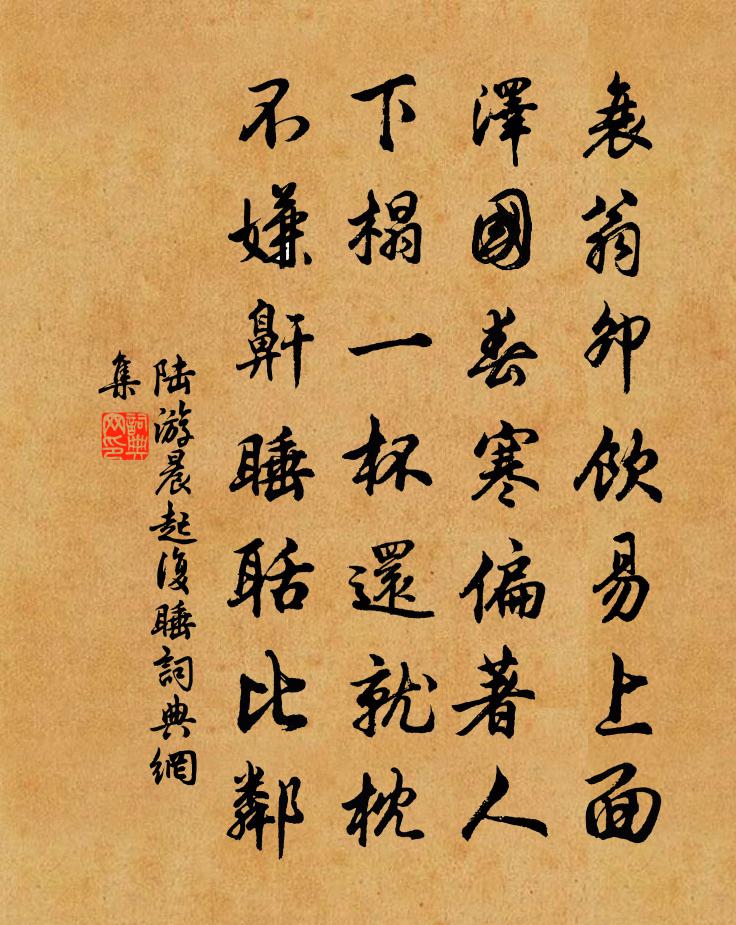 衰翁卯飲易上面
澤國春寒偏著人
下榻一杯還就枕
不嫌鼾睡聒比鄰
陆游晨起復睡詞典網
集
詞典
网印